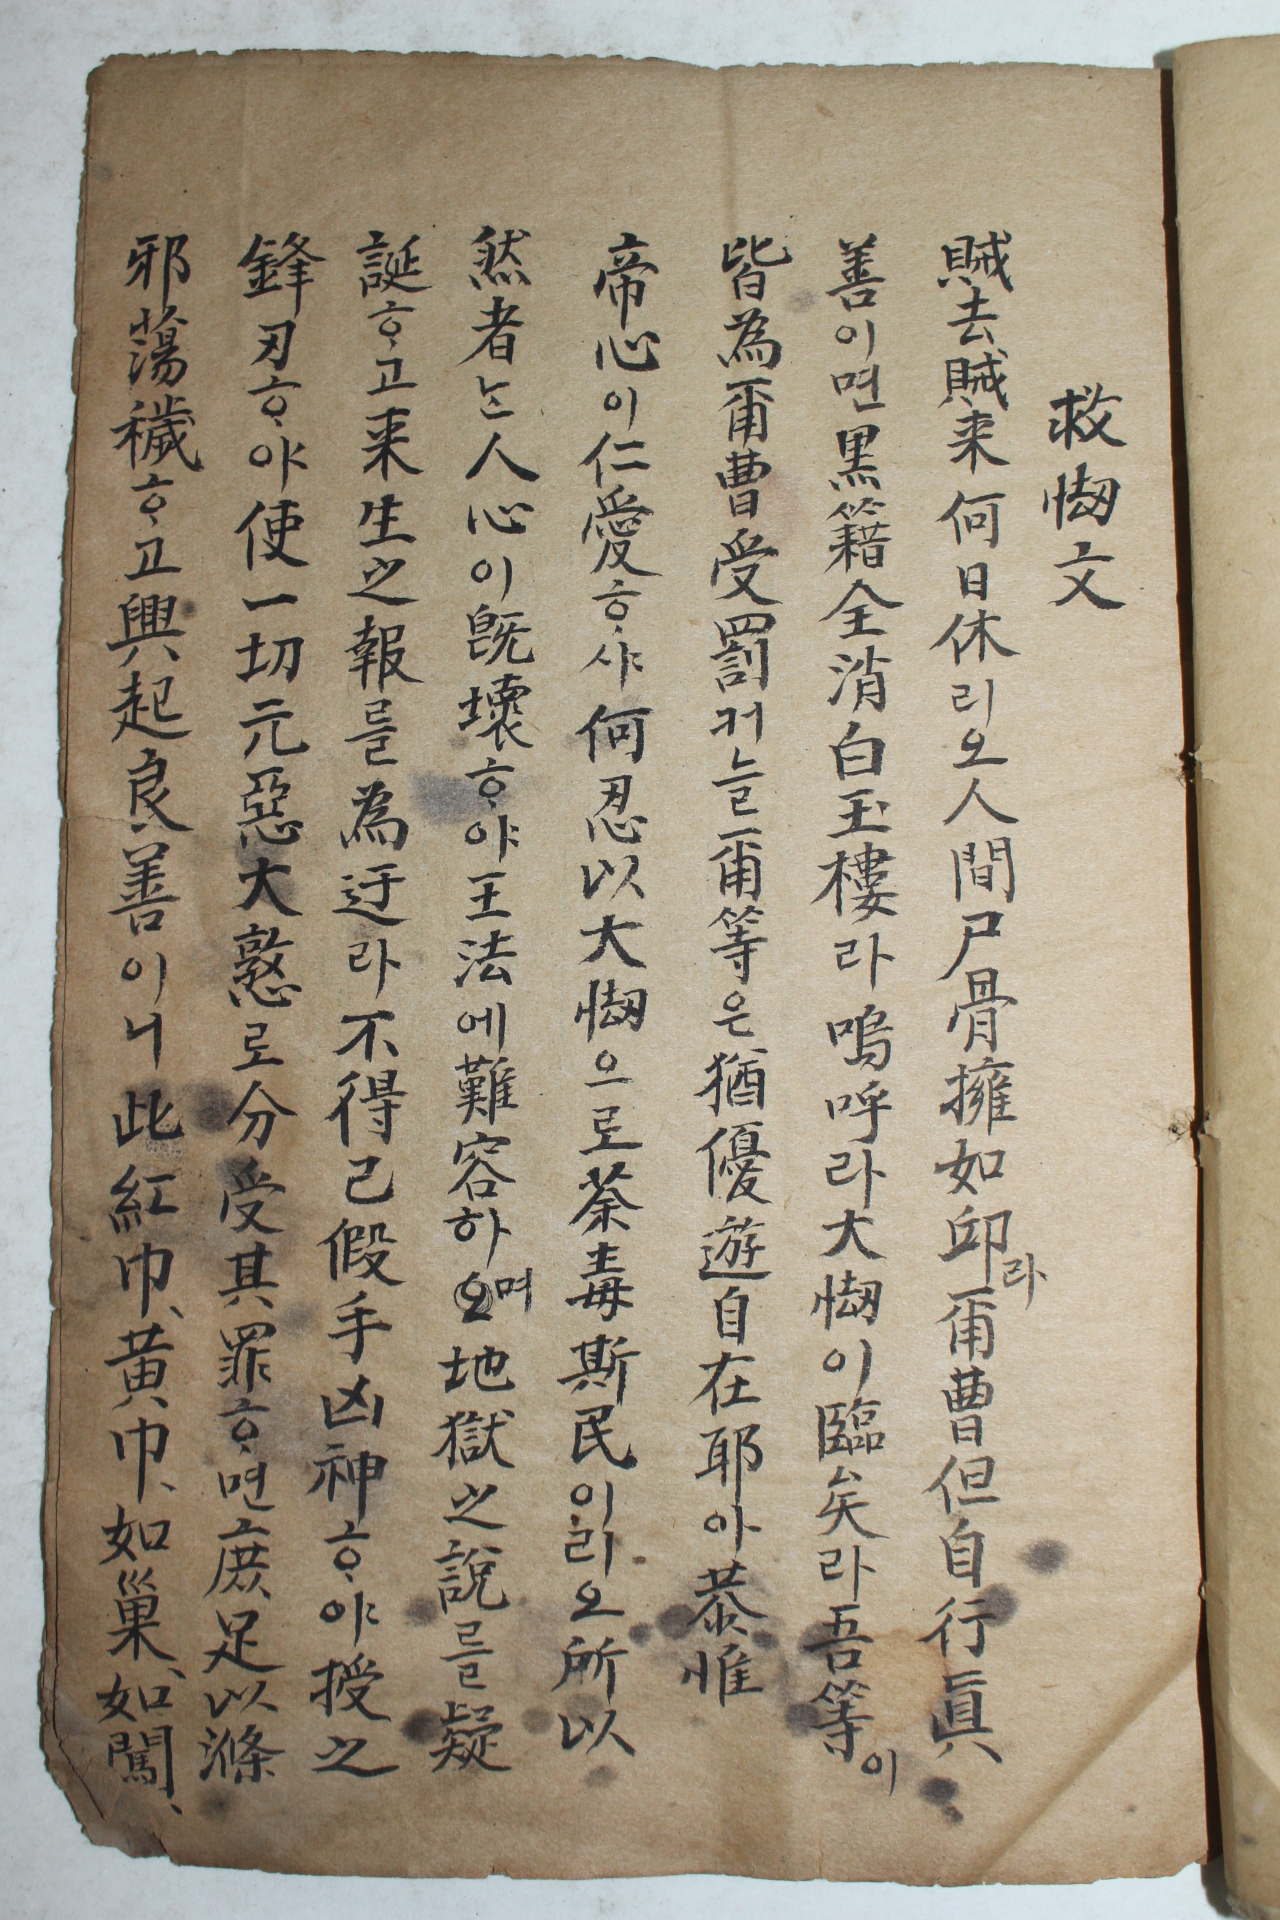 救㤼文
賊去賊来何日休리오人間尸骨擁如邱라爾曹但自行眞
善이면黒籍全消白玉樓라嗚呼라大㤼이臨矣라吾等이
皆為爾曹受罰커늘爾等은猶優遊自在耶아恭惟
帝心이仁愛ᄒᆞ샤何忍以大㤼으로荼毒斯民이리오所以
然者ᄂᆞᆫ人心이旣壞ᄒᆞ야王法에難容하며地獄之說를疑
誕ᄒᆞ고来生之報를為迂라不得已假手凶神ᄒᆞ야授之
鋒刃ᄒᆞ야使一切元惡大憝로分受其罪ᄒᆞ면庶足以滌
邪蕩穢ᄒᆞ고興起良善이니此紅巾、黃巾、如巢、如闖、